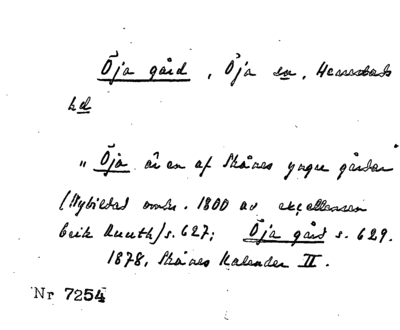 Öja gård, Öja sn, Herrestads
hd
"Öja är en af Skånes yngre gårdar"
(Nybildad omkr. 1800 av excellensen
Erik Ruuth) s. 627; Öja gård s. 629.
1878, Skånes Kalender II.
Nr 7254